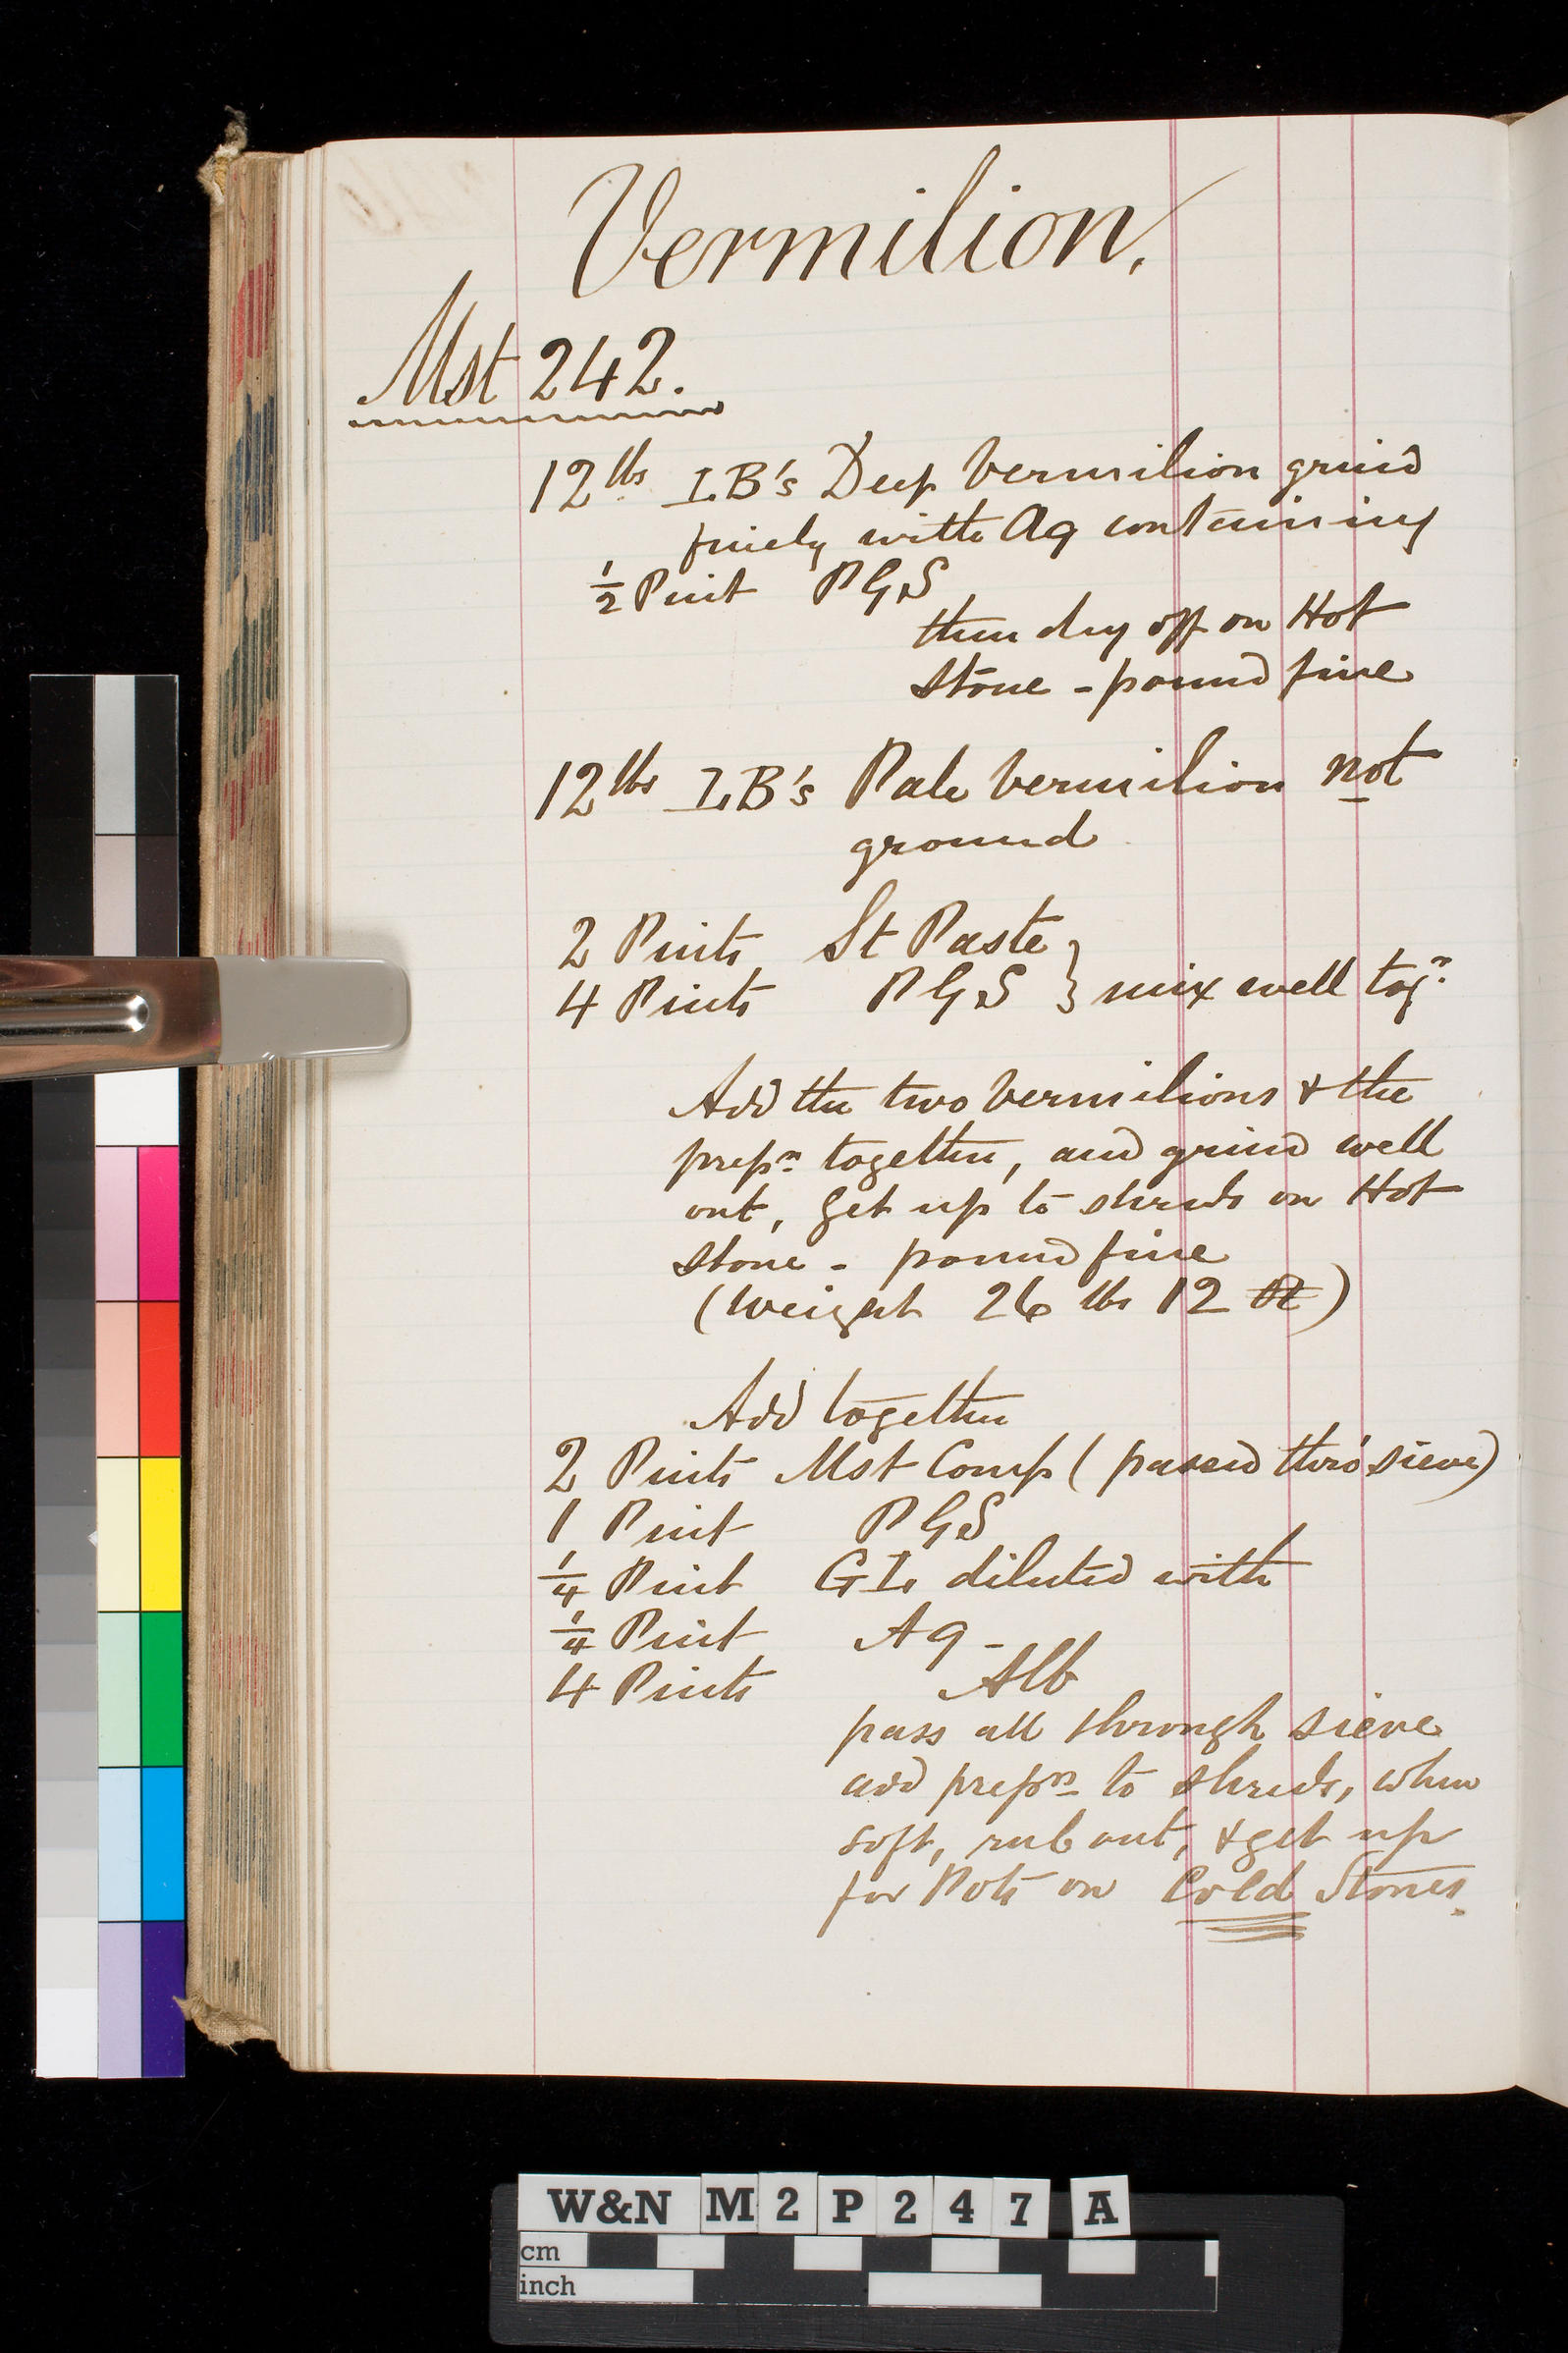 Vermilion,
Mst 242.
12 lbs I.B's Deep Vermilion grind
finely with Aq containing
1/2 Pint P G S
then dry off on Hot
Stone - pound fine
12 lbs I.B's Pale Vermilion not
ground
2 Pints St Paste
4 Pints P G S } mix well togr
Add the two Vermilions & the
prepn together, and grind well
out, get up to shreds on Hot
Stone - pound fine
(Weight 26 lbs 12 oz)
Add together
2 Pints Mst Comp ( passed thro' sieve)
1 Pint P G S
1/4 Pint G I. diluted with
1/4 Pint Aq -
4 Pints Alb
pass all through sieve
add prepn to shreds, when
soft, rub out, & get up
for Pots on Cold Stones.
W&N M 2 P 2 4 7 A
cm
inch